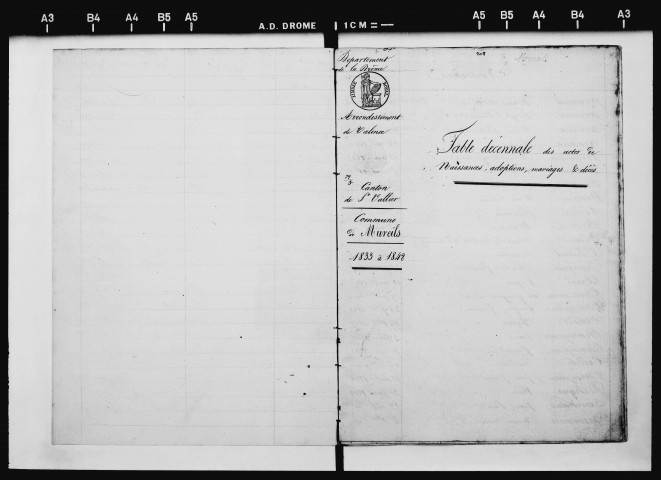 A3 B4 A4 B5 A5 A.D. DROME 1 CM A5 B5 A4 B4 A3
208
Département
de la Drôme
TIMBRE ROYAL
Arrondissement
de Valence
Canton
de St Vallier
Commune
de Mureils
1833 à 1842
Table décennale des actes de
Naissances, adoptions, mariages & décès